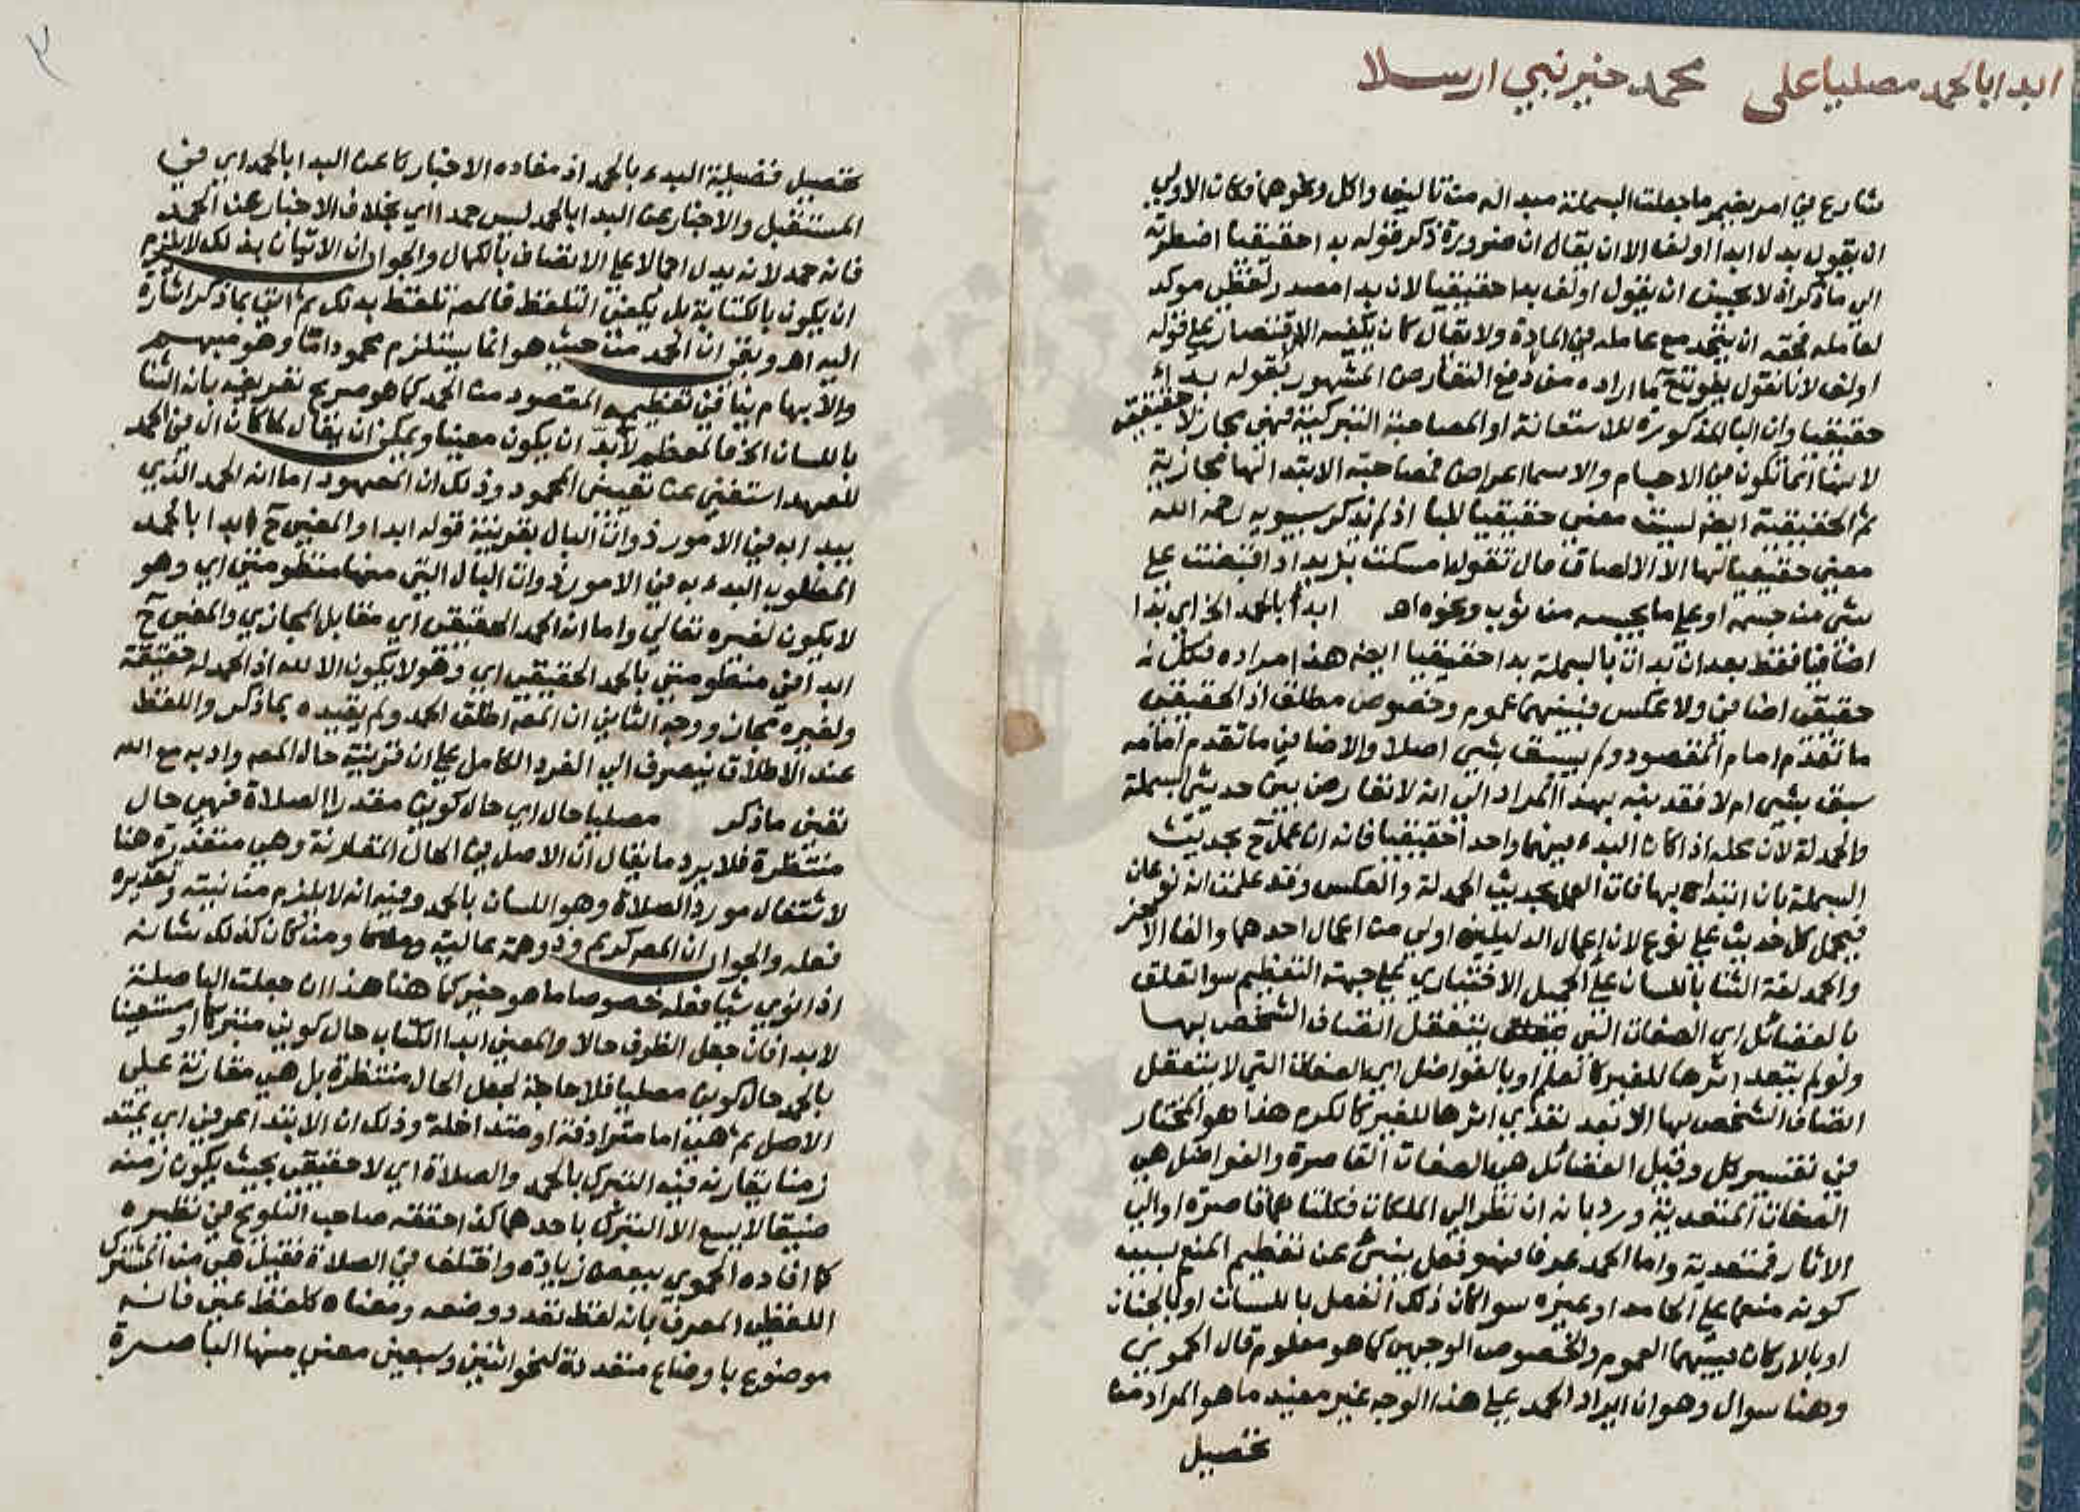 ابدا بالحمد مصليا على محمد خير نبي ارسلا
شارع في امر يضمر ما جعلت البسملة مبداله من تاليف واكل ونحوهما فكان الاولى
ان يقول بدل ابدا اولف الا ان يقال ان ضرورة ذكر قوله بدا حقيقيا اضطرته
الى ما ذكر اذ لا يحسن ان يقول اولف بدا حقيقيا لان بدا مصدر لفظي موكد
لعامله فحقه ان يتحد مع عامله في المادة ولا يقال كان يكفيه الاقتصار على قوله
اولف لانا نقول يفوته ح ما اراده من دفع التعارض المشهور بقوله بداء
حقيقيا وان البا المذكورة للاستعانة او المصاحبة التبركية فهي مجاز لا حقيقة
لانها انما تكون في الاجسام والاسما اعراض فمصاحبة الابتدا لها مجازية
ثم الحقيقية ايضا ليست معنى حقيقيا للبا اذ لم يذكر سيبويه رحمه الله
معنى حقيقيا لها الا الالصاق قال تقول امسكت بزيد اذا قبضت على
شي من جسمه او على ما يحبسه من ثوب ونحوه اهـ ابدأ بالحمد الخ اي بدا
اضافيا فقط بعد ان بدات بالبسملة بدا حقيقيا ايضا هذا مراده فكل
حقيقي اضافي ولا عكس فبينهما عموم وخصوص مطلق اذ الحقيقي
ما تقدم امام المقصود ولم يسبق بشي اصلا والاضافي ما تقدم امامه
سبق بشي ام لا فقد نبه بهذا المراد الى انه لا تعارض بين حديثي البسملة
والحمدلة لان محله اذا كان البدء فيهما واحدا حقيقيا فانه ان عمل ح بحديث
البسملة بان ابتدا بها فات العمل بحديث الحمدلة والعكس وقد علمت انه نوعان
فيحمل كل حديث على نوع لان اعمال الدليلين اولى من اعمال احدهما والغا الاخر
والحمد لغة الثنا باللسان على الجميل الاختياري على جهة التعظيم سوا تعلق
بالفضائل اي الصفات التي يتعقل اتصاف الشخص بها
ولو لم يتعد اثرها للغير كالعلم او بالفواضل اي الصفات التي لا يتعقل
اتصاف الشخص بها الا بعد تعدي اثرها للغير كالكرم هذا هو المختار
في تفسير كل وقيل الفضائل هي الصفات القاصرة والفواضل هي
الصفات المتعدية ورد بانه ان نظر الى الملكات فكلتاهما قاصرة او الى
الاثار فمتعدية واما الحمد عرفا فهو فعل ينبئ عن تعظيم المنعم بسبب
كونه منعما على الحامد او غيره سوا كان ذلك الفعل باللسان او بالجنان
او بالاركان فبينهما العموم والخصوص الوجهي كما هو معلوم قال الحموي
وهنا سوال وهو ان ايراد الحمد على هذا الوجه غير مفيد ما هو المراد من
تحصيل
تحصيل فضيلة البدء بالحمد اذ مفاده الاخبار عن البدا بالحمد اي في
المستقبل والاخبار عن البدا بالحمد ليس حمدا اي بخلاف الاخبار عن الحمد
فانه حمد لانه يدل اجمالا على الاتصاف بالكمال والجواب ان الاتيان بذلك لا يلزم
ان يكون بالكتابة بل يكفي التلفظ فالمصـ تلفظ بذلك ثم اتى بما ذكر اشارة
اليه اهـ وبقي ان الحمد من حيث هو انما يستلزم محمودا ما وهو مبهم
والابهام ينافي تعظيمه المقصود من الحمد كما هو صريح تعريفه بانه الثنا
باللسان الخ فالمعظم لا بد ان يكون معينا ويمكن ان يقال لما كان ال في الحمد
للعهد استغنى عن تعيين المحمود وذلك ان المعهود اما انه الحمد الذي
يبدا به في الامور ذوات البال بقرينة قوله ابدا والمعنى ح ابدا بالحمد
المطلوب البدء به في الامور ذوات البال التي منها منظومتي اي وهو
لا يكون لغيره تعالى واما انه الحمد الحقيقي اي مقابل المجازي والمعنى ح
ابدا في منظومتي بالحمد الحقيقي اي وهو لا يكون الا لله اذ الحمد له حقيقة
ولغيره مجاز ووجه الثاني ان المصـ اطلق الحمد ولم يقيده بما ذكر واللفظ
عند الاطلاق ينصرف الى الفرد الكامل على ان قرينة حال المصـ وادبه مع الله
تعين ما ذكر مصليا حال اي حال كوني مقدرا الصلاة فهي حال
منتظرة فلا يرد ما يقال ان الاصل في الحال المقارنة وهي متعذرة هنا
لاشتغال مورد الصلاة وهو اللسان بالحمد وفيه انه لا يلزم من نيته وتقديره
فعله والجواب ان المصـ كريم وذو همة عالية ومن كان كذلك شانه
اذا نوى شيا فعله خصوصا ما هو خير كما هنا هذا ان جعلت البا صلة
لابدا فان جعل الظرف حالا والمعنى ابدا الكتاب حال كوني متبركا او مستعينا
بالحمد حال كوني مصليا فلا حاجة لجعل الحال منتظرة بل هي مقارنة على
الاصل ثم هي اما مترادفة او متداخلة وذلك ان الابتدا عرفي اي يمتد
زمنا يقارنه فيه التبرك بالحمد والصلاة اي لا حقيقي بحيث يكون زمنه
ضيقا لا يسع الا التبرك باحدهما كذا حققه صاحب التلويح في نظيره
كما افاده الحموي ببعض زيادة واختلف في الصلاة فقيل هي من المشترك
اللفظي المعرف بانه لفظ تعدد وضعه ومعناه كلفظ عين فانه
موضوع باوضاع متعددة لنحو اثنين وسبعين معنى منها الباصرة